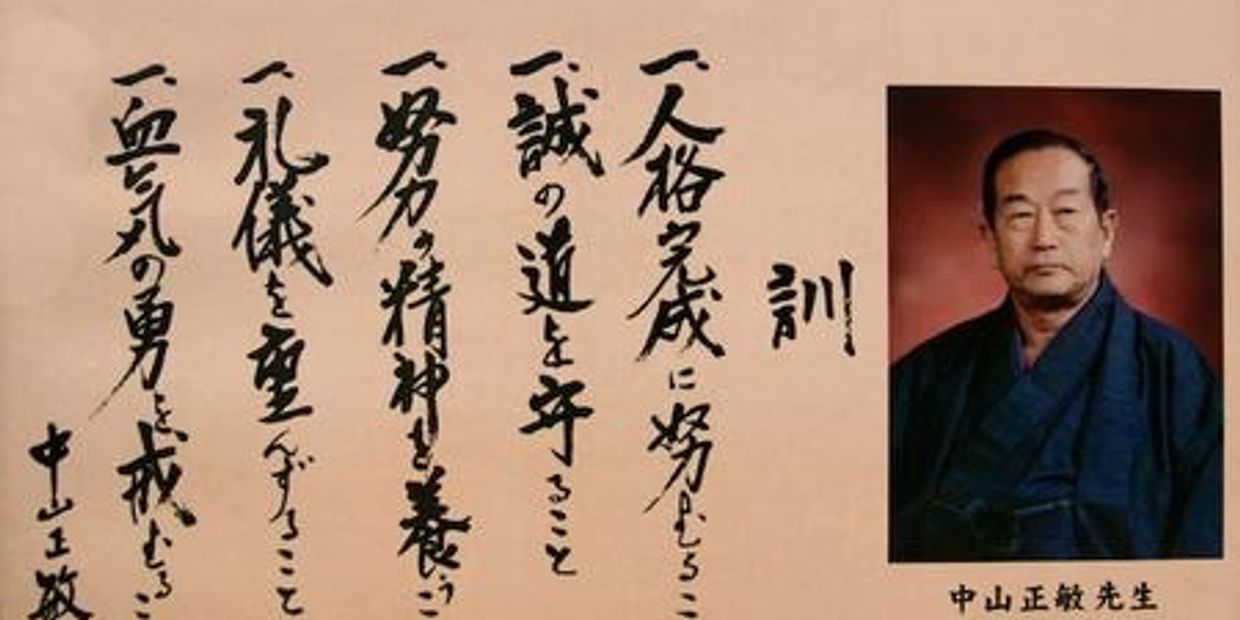 中山正敏先生
訓
一、人格完成に努むるこ
一、誠の道を守ること
一、努力の精神を養うこ
一、礼儀を重んずること
一、血気の勇を戒むるこ
中山正敏